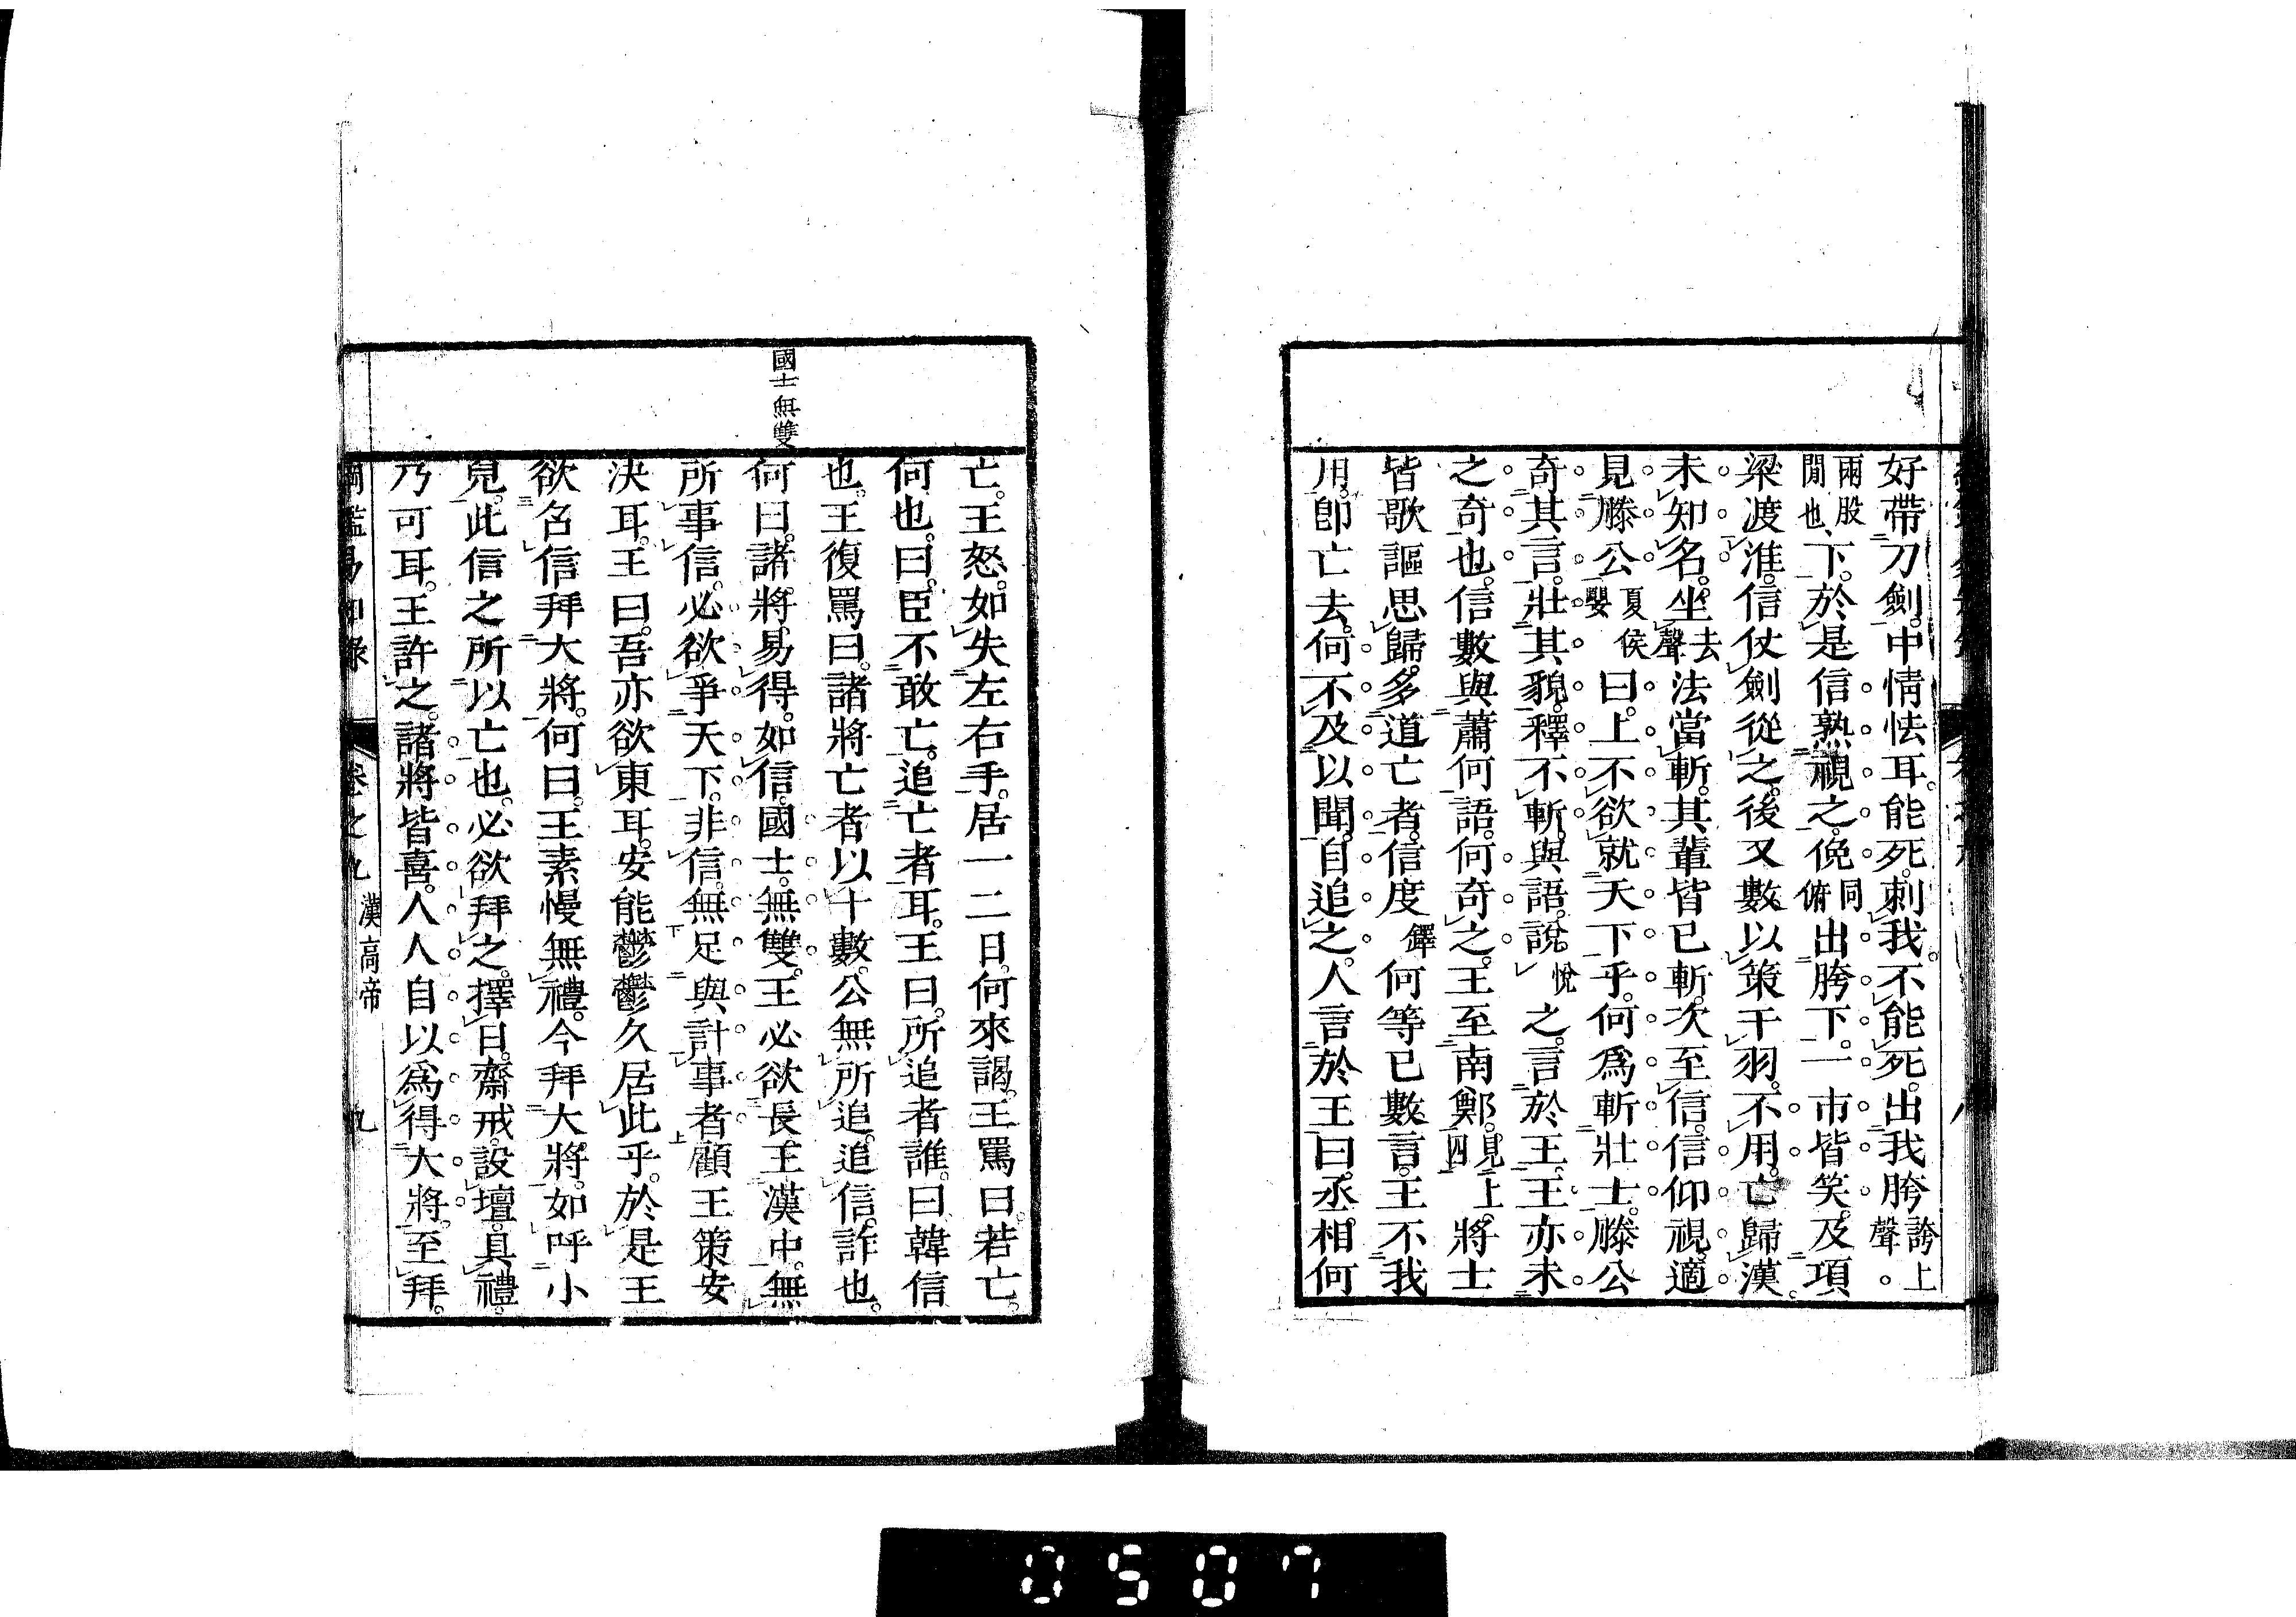 好帶刀劍。中情怯耳。能死。刺我。不能死。出我胯誇上聲。
兩股閒也、下。於是信熟視之。俛同俯出胯下。一市皆笑。及項
梁渡淮。信仗劍從之。後又數以策干羽。不用。亡歸漢。
未知名。坐去聲法當斬。其輩皆已斬。次至信。信仰視。適
見滕公夏侯嬰曰。上不欲就天下乎。何爲斬壯士。滕公
奇其言。壯其貌。釋不斬。與語。說悅之。言於王。王亦未
之奇也。信數與蕭何語。何奇之。王至南鄭。見上四將士
皆歌謳思歸。多道亡者。信度鐸何等已數言。王不我
用。卽亡去。何不及以聞。自追之。人言於王曰。丞相何
亡。王怒。如失左右手。居一二日。何來謁。王罵曰。若亡。
何也。曰。臣不敢亡。追亡者耳。王曰。所追者誰。曰韓信
也。王復罵曰。諸將亡者以十數。公無所追。追信。詐也。
國士無雙
何曰。諸將。易得。如信。國士。無雙。王必欲長王漢中。無
所事信。必欲爭天下。非信。無足與計事者。顧王策安
決耳。王曰。吾亦欲東耳。安能鬱鬱久居此乎。於是王
欲名信拜大將。何曰。王素慢無禮。今拜大將。如呼小
兒。此信之所以亡也。必欲拜之。擇日。齋戒。設壇。具禮。
乃可耳。王許之。諸將皆喜。人人自以爲得大將。至拜。
綱鑑易知錄 卷之九 漢高帝 九
0507